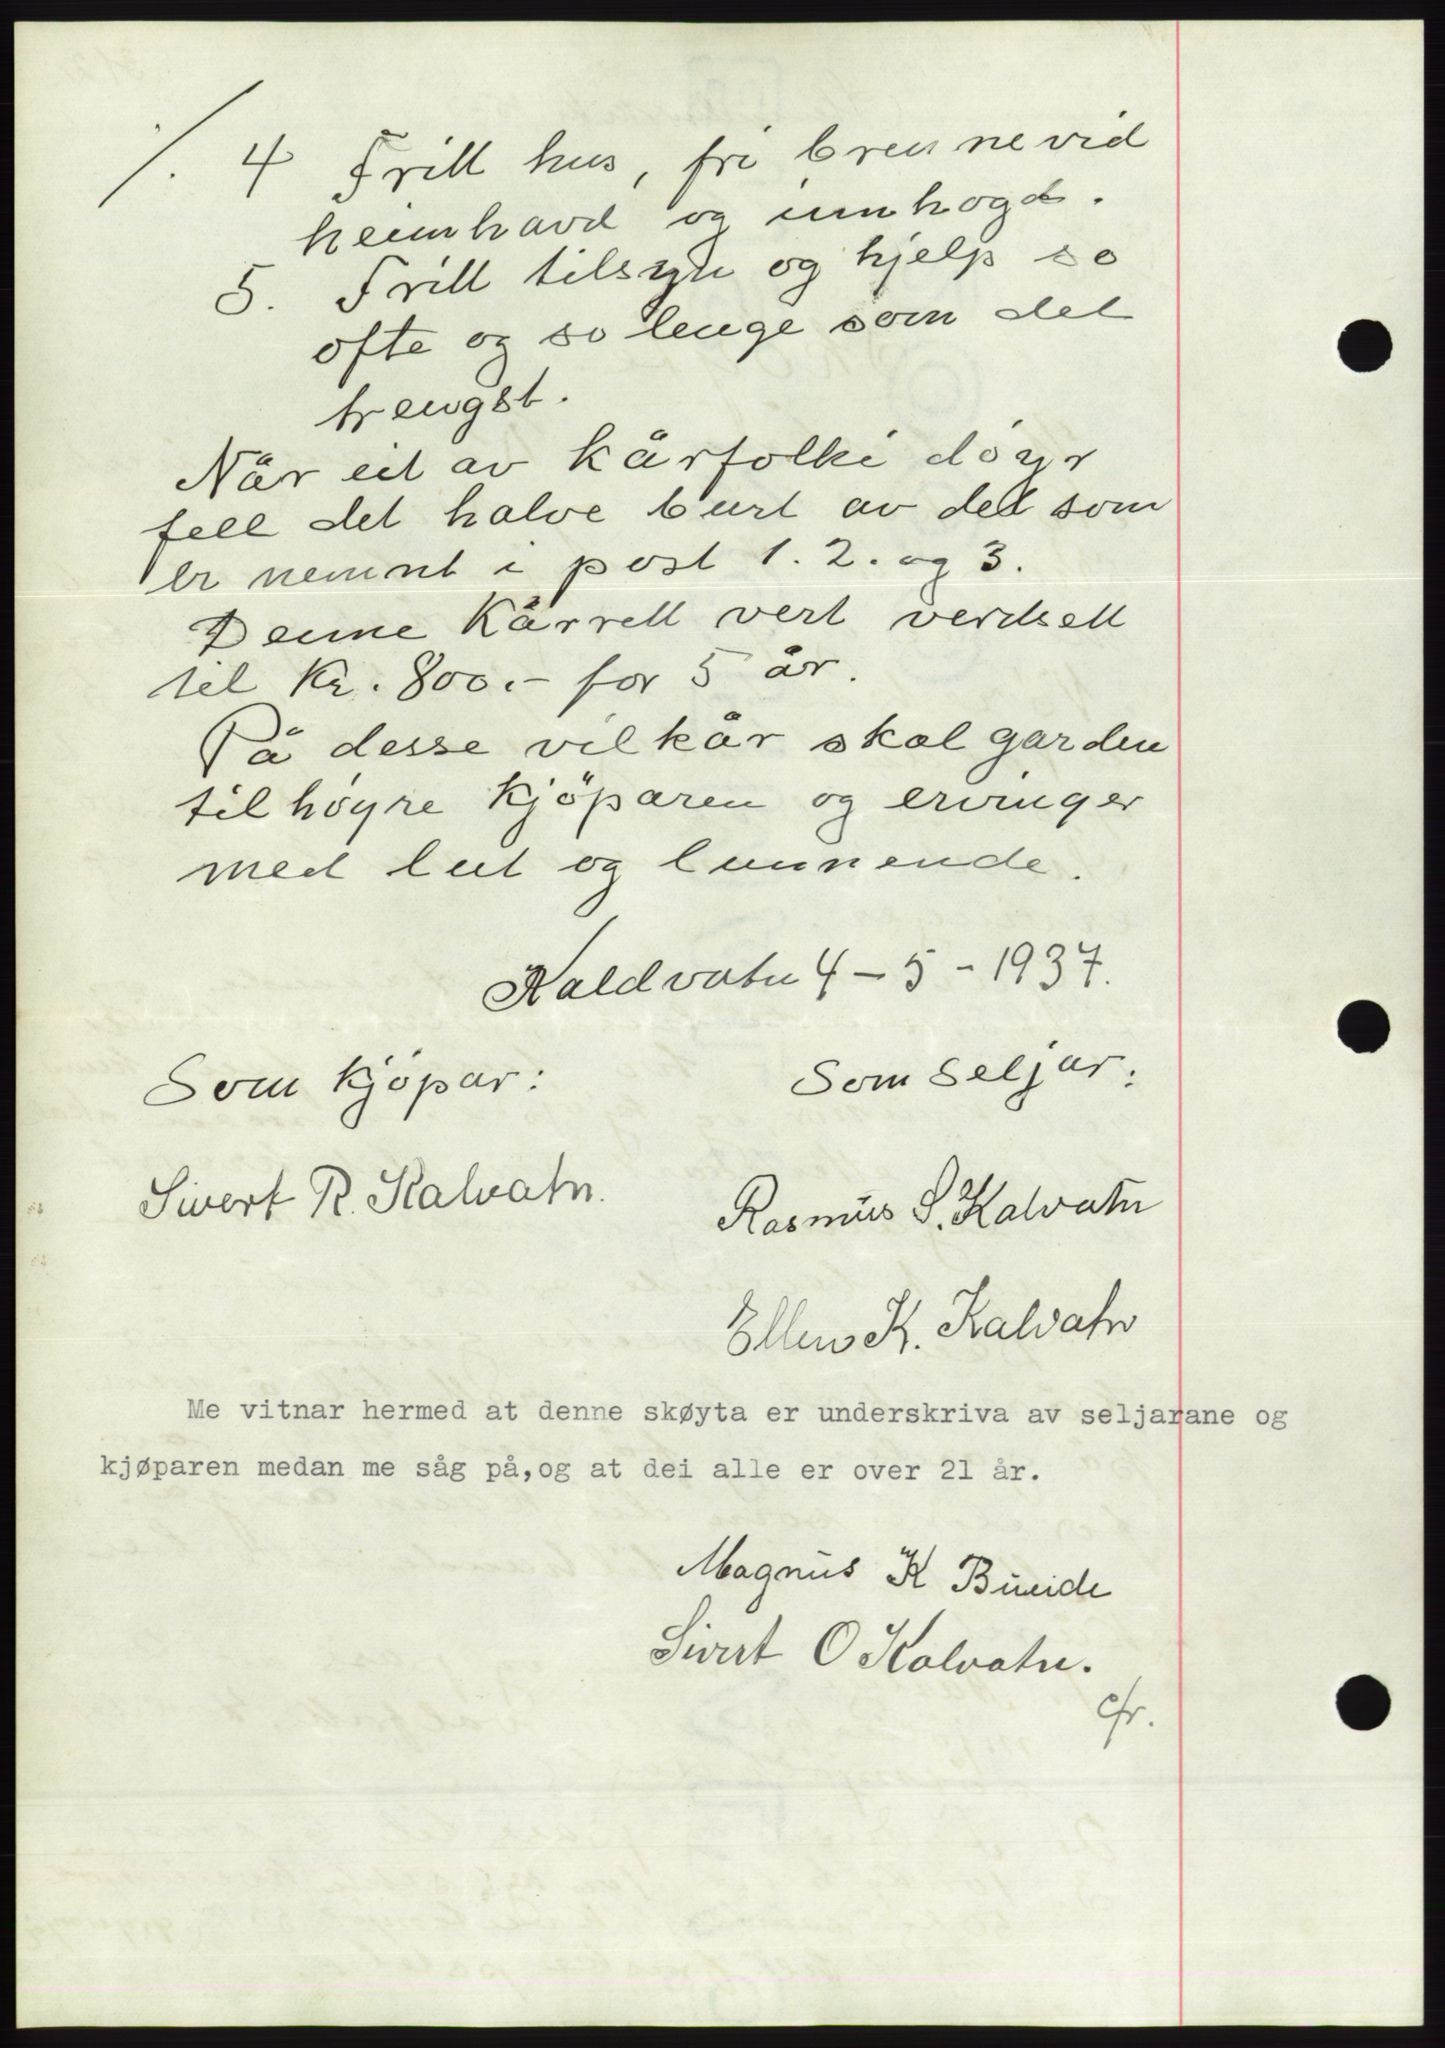 /. 4 Fritt hus, fri brennevid
heimhavd og innhogd.
5. Fritt tilsyn og hjelp so
ofte og so lenge som det
trengst.
Når eit av kårfolki döyr
fell det halve burt av det som
er nemnt i post 1. 2. og 3.
Denne kårrett vert verdsett
til kr. 800.- for 5 år.
På desse vilkår skal garden
tilhöyre kjöparen og ervinger
med lut og lunnende.
Kaldvatn 4 - 5 - 1937.
Som kjöpar: Som seljar:
Sivert R. Kalvatn. Rasmus S. Kalvatn
Ellen K. Kalvatn
Me vitnar hermed at denne skøyta er underskriva av seljarane og
kjøparen medan me såg på,og at dei alle er over 21 år.
Magnus K Bueide
Sivert O Kalvatn.
cfr.